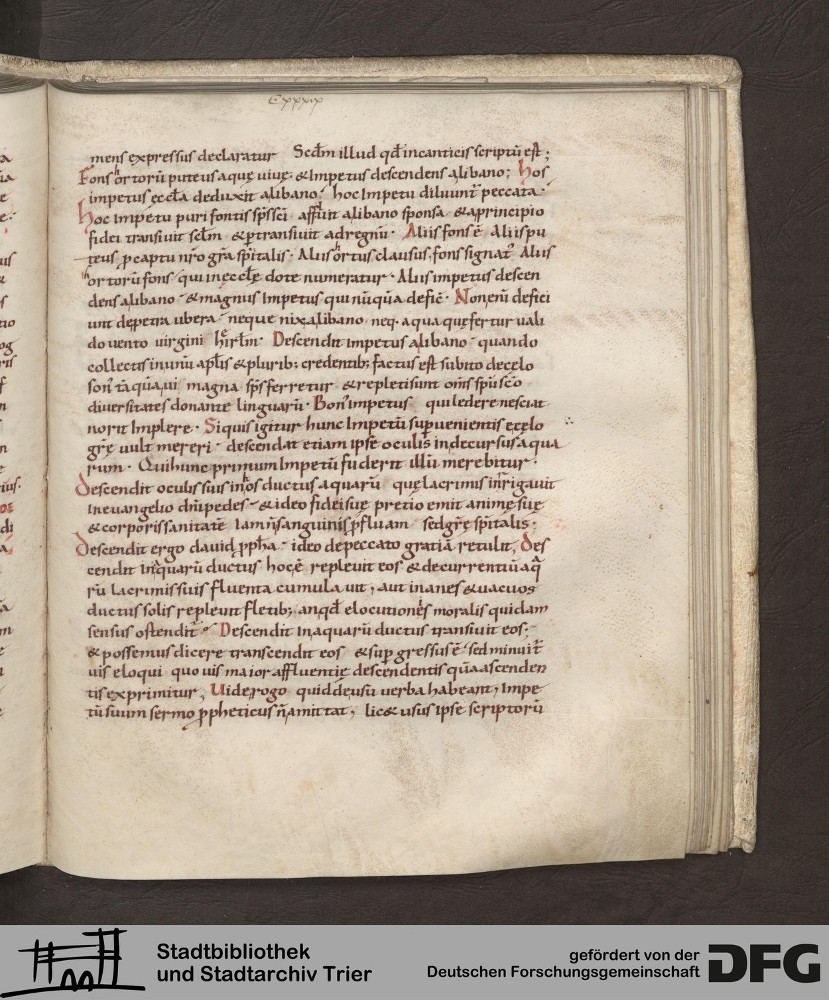 Cxxxix
mens expressius declaratur Scdm illud qd incanticis scriptū est;
Fons ortorū puteus aquę uiuę. & Impetus descendens alibano; hos
impetus ęccła deduxit alibano. hoc Impetu diluunt̄ peccata.
hoc impetu puri fontis sp̄s sc̄i affluit alibano sponsa &aprincipio
fidei transiuit sclm̄ &ptransiuit adregnū. Aliis fons ē Aliis pu
teus pcaptu nr̄o gr̄a sp̄italis. Aliis ortus clausus, fons signat᷒ Aliis
ortorū fons qui inęcclę dote numeratur. Alius impetus descen
dens alibano &magnus Impetus qui nūquā deficit. Non enī defici
unt depetra ubera neque nix alibano neq. aqua quę fertur uali
do uento uirgini hierłm. Descendit impetus alibano quando
collectis inunū apłis &plurib; credentib; factus est subito decęlo
son᷒ tāquā ui magna sp̄s ferretur &repleti sunt om̄s sp̄u sc̄o
diuersitates donante linguarū. Bon᷒ impetus qui ledere nesciat
norit Implere. Siquis igitur hunc Impetū supuenientis ecęlo
gr̄ę uult mereri. descendat etiam ipse oculis indecursus aqua
rum. Qui hunc primum Impetū fuderit illū merebitur.
Descendit oculis suis in os ductus aquarū quę lacrimis inrigauit
Ineuangelio dnī pedes &ideo fidei suę pretio emit animę suę
&corporis sanitatē Iam n̄ sanguinis pfluuiam sed gr̄ę sp̄italis.
Descendit ergo dauid ppha. ideo depeccato gratiā retulit, Des
cendit inquarū ductus hoc ē repleuit eos &decurrentiū aq̄
rū lacrimis suis fluenta cumulauit, aut inanes &uacuos
ductus solis repleuit fletib; an qd elocutiones moralis quidam
sensus ostendit. Descendit Inaquarū ductus transiuit eos;
&possemus dicere transcendit eos &supgressus ē sed minuit̄
uis eloqui quo uis maior affluentię descendentis quā ascenden
tis exprimitur, Uide rogo quid deusū uerba habeant, Impe
tū suum sermo ppheticus n̄ amittat, lic& usus ipse scriptorū
Stadtbibliothek
und Stadtarchiv Trier
gefördert von der
Deutschen Forschungsgemeinschaft
DFG